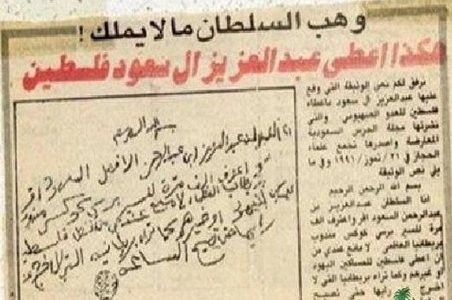 وهب السلطان مالايملك !
هكذا اعطى عبدالعزيز ال سعود فلسطين
نرفق لكم نص الوثيقة التي وقع
عليها عبدالعزيز ال سعود باعطاء
فلسطين للعدو الصهيوني والتي
نشرتها مجلة الحرس السعودية
المعارضة واصدرها تجمع علماء
الحجاز في ٢١ / تموز / ١٩٩١ وفي ما
نص الوثيقة
بسم الله الرحمن الرحيم
انا السلطان عبدالعزيز بن
عبدالرحمن السعود اقر واعترف الف
مرة للسير برسي كوكس مندوب
بريطانيا العظمى لا مانع عندي من
اعطي فلسطين للمساكين اليهود
او غيرهم وكما تراه بريطانيا التي لا
اخرج رايها حتى تصيح
بسم الله الرحمن الرحيم
انا السلطان عبدالعزيز ابن عبدالرحمن الفيصل السعود اقر
و اعترف الف مرة للسير برسي كوكس مندوب
بريطانيا العظمى لا مانع عندي فلسطين
اليهود او غيرهم كما تراه بريطانيا التي لا اخرج عن
رايها حتى تصيح الساعة